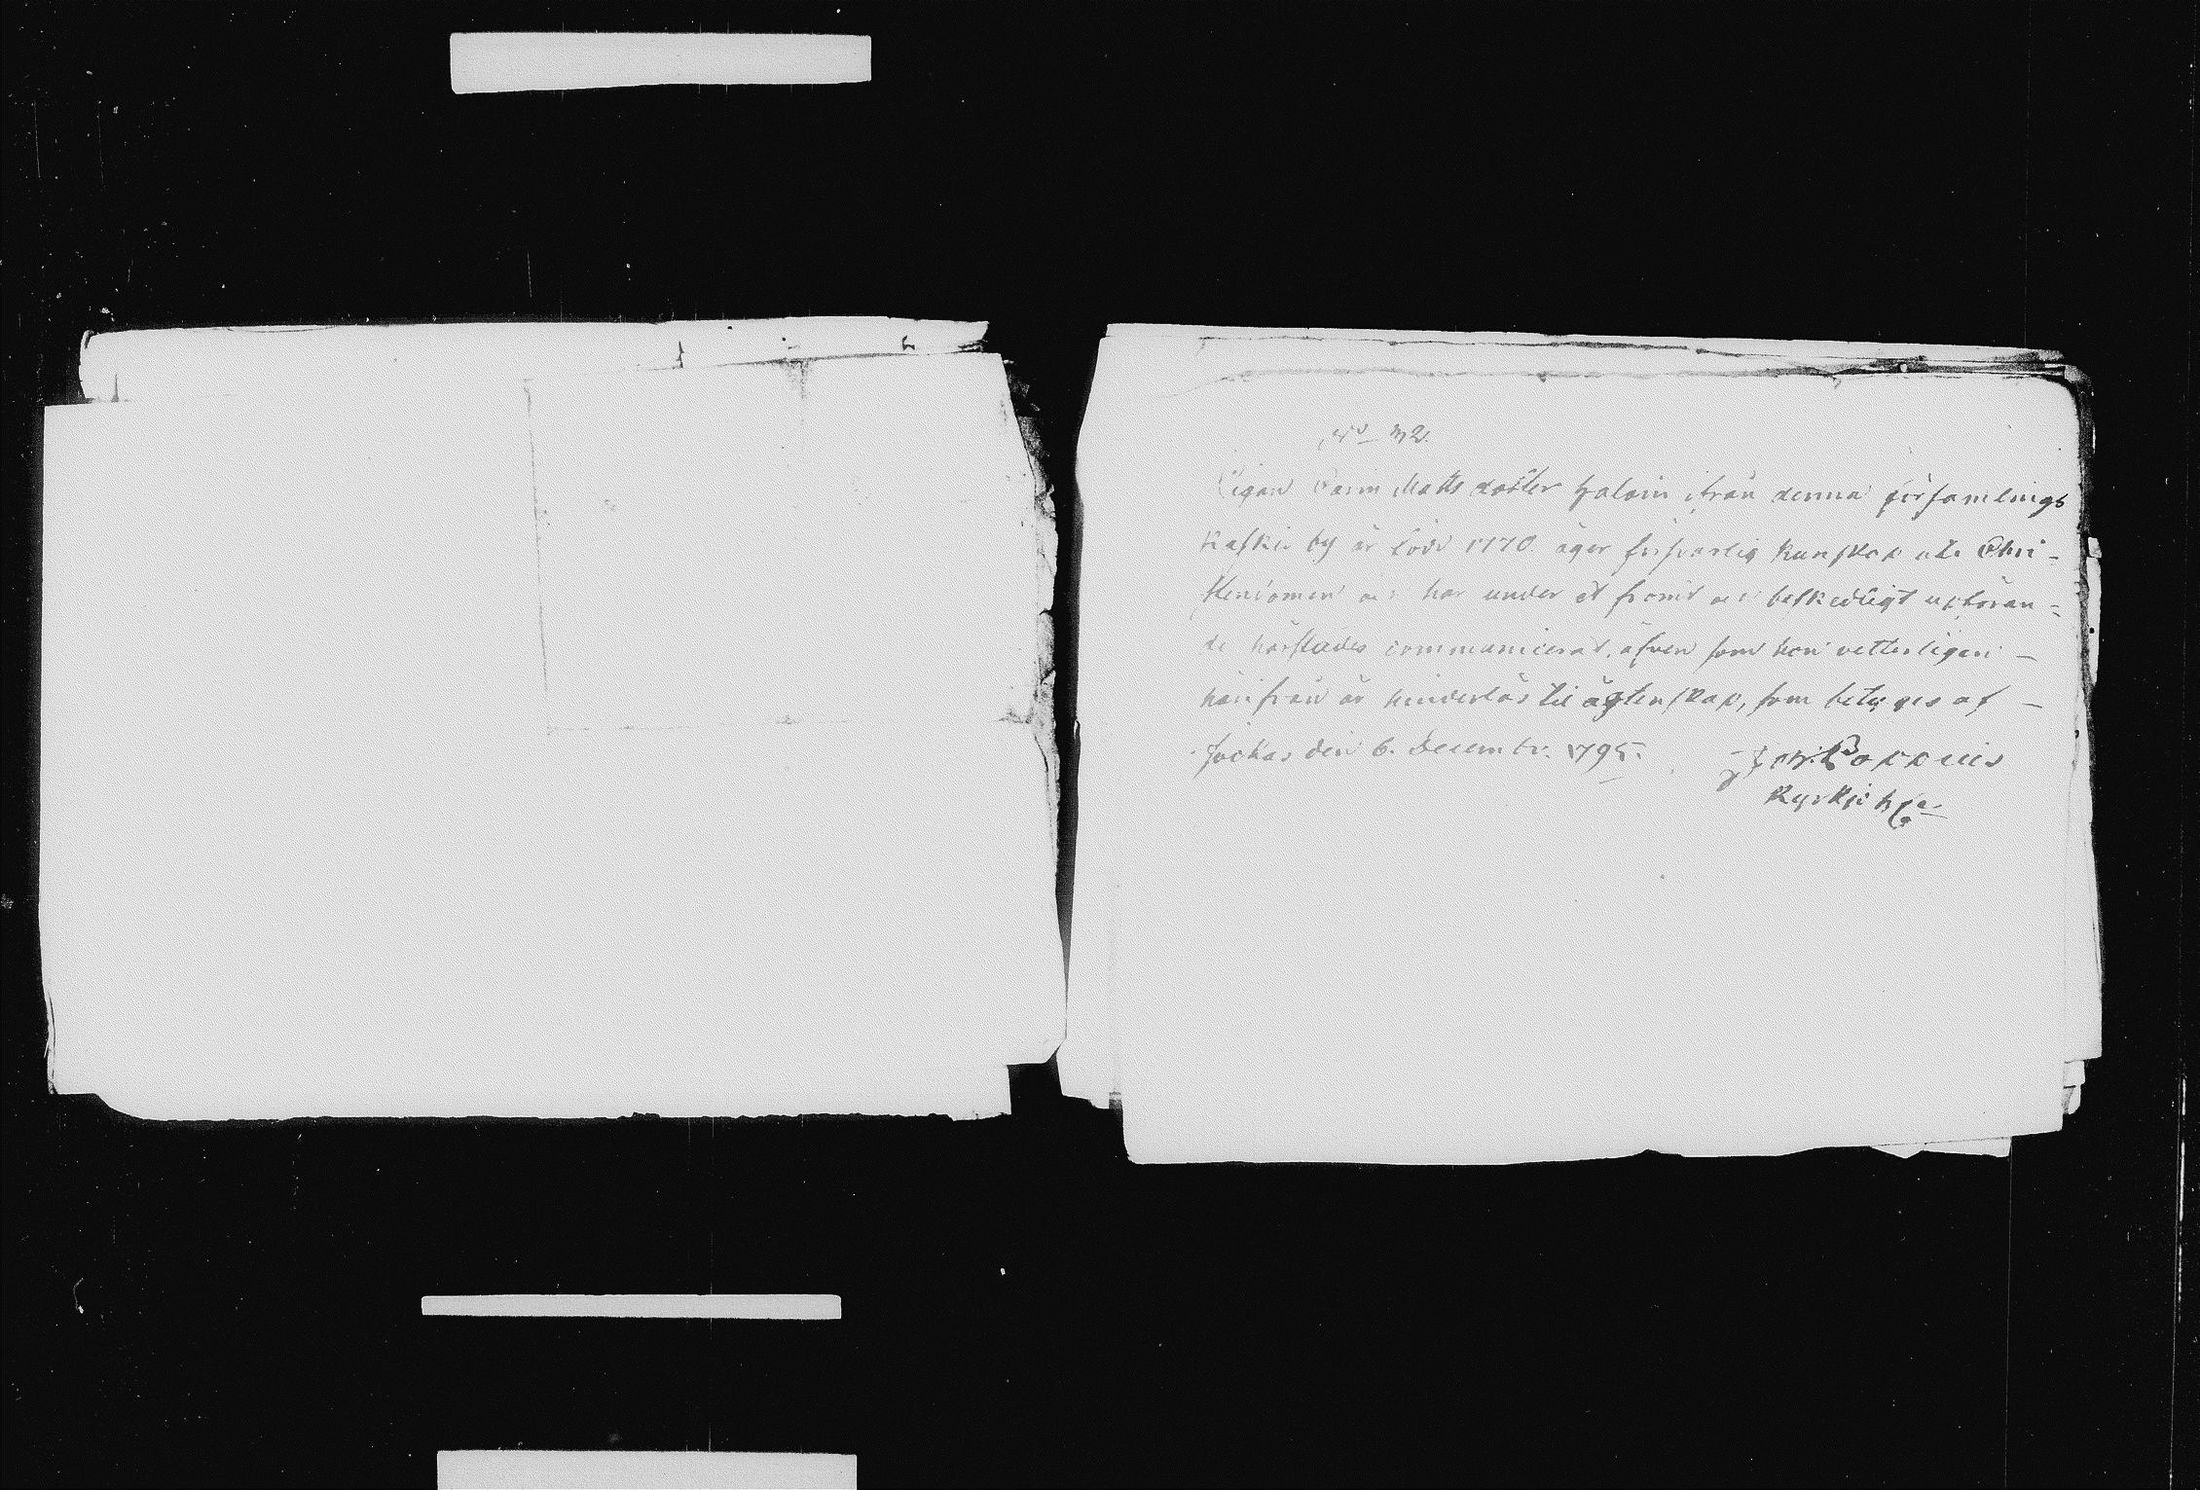 N:o 32.
Pigan Carin Matts dotter Halain ifrån denna församlings
Kaskis by är född 1770. äger försvarlig kunskap uti Chri-
stendomen och har under et fromt och beskedligt uptöran-
de härstädes communicerat, äfven som hon vetterligen
härifrån är hinderlös til ägtenskap, som betyges af
Jockas den 6. Decembr. 1795.
Poppius